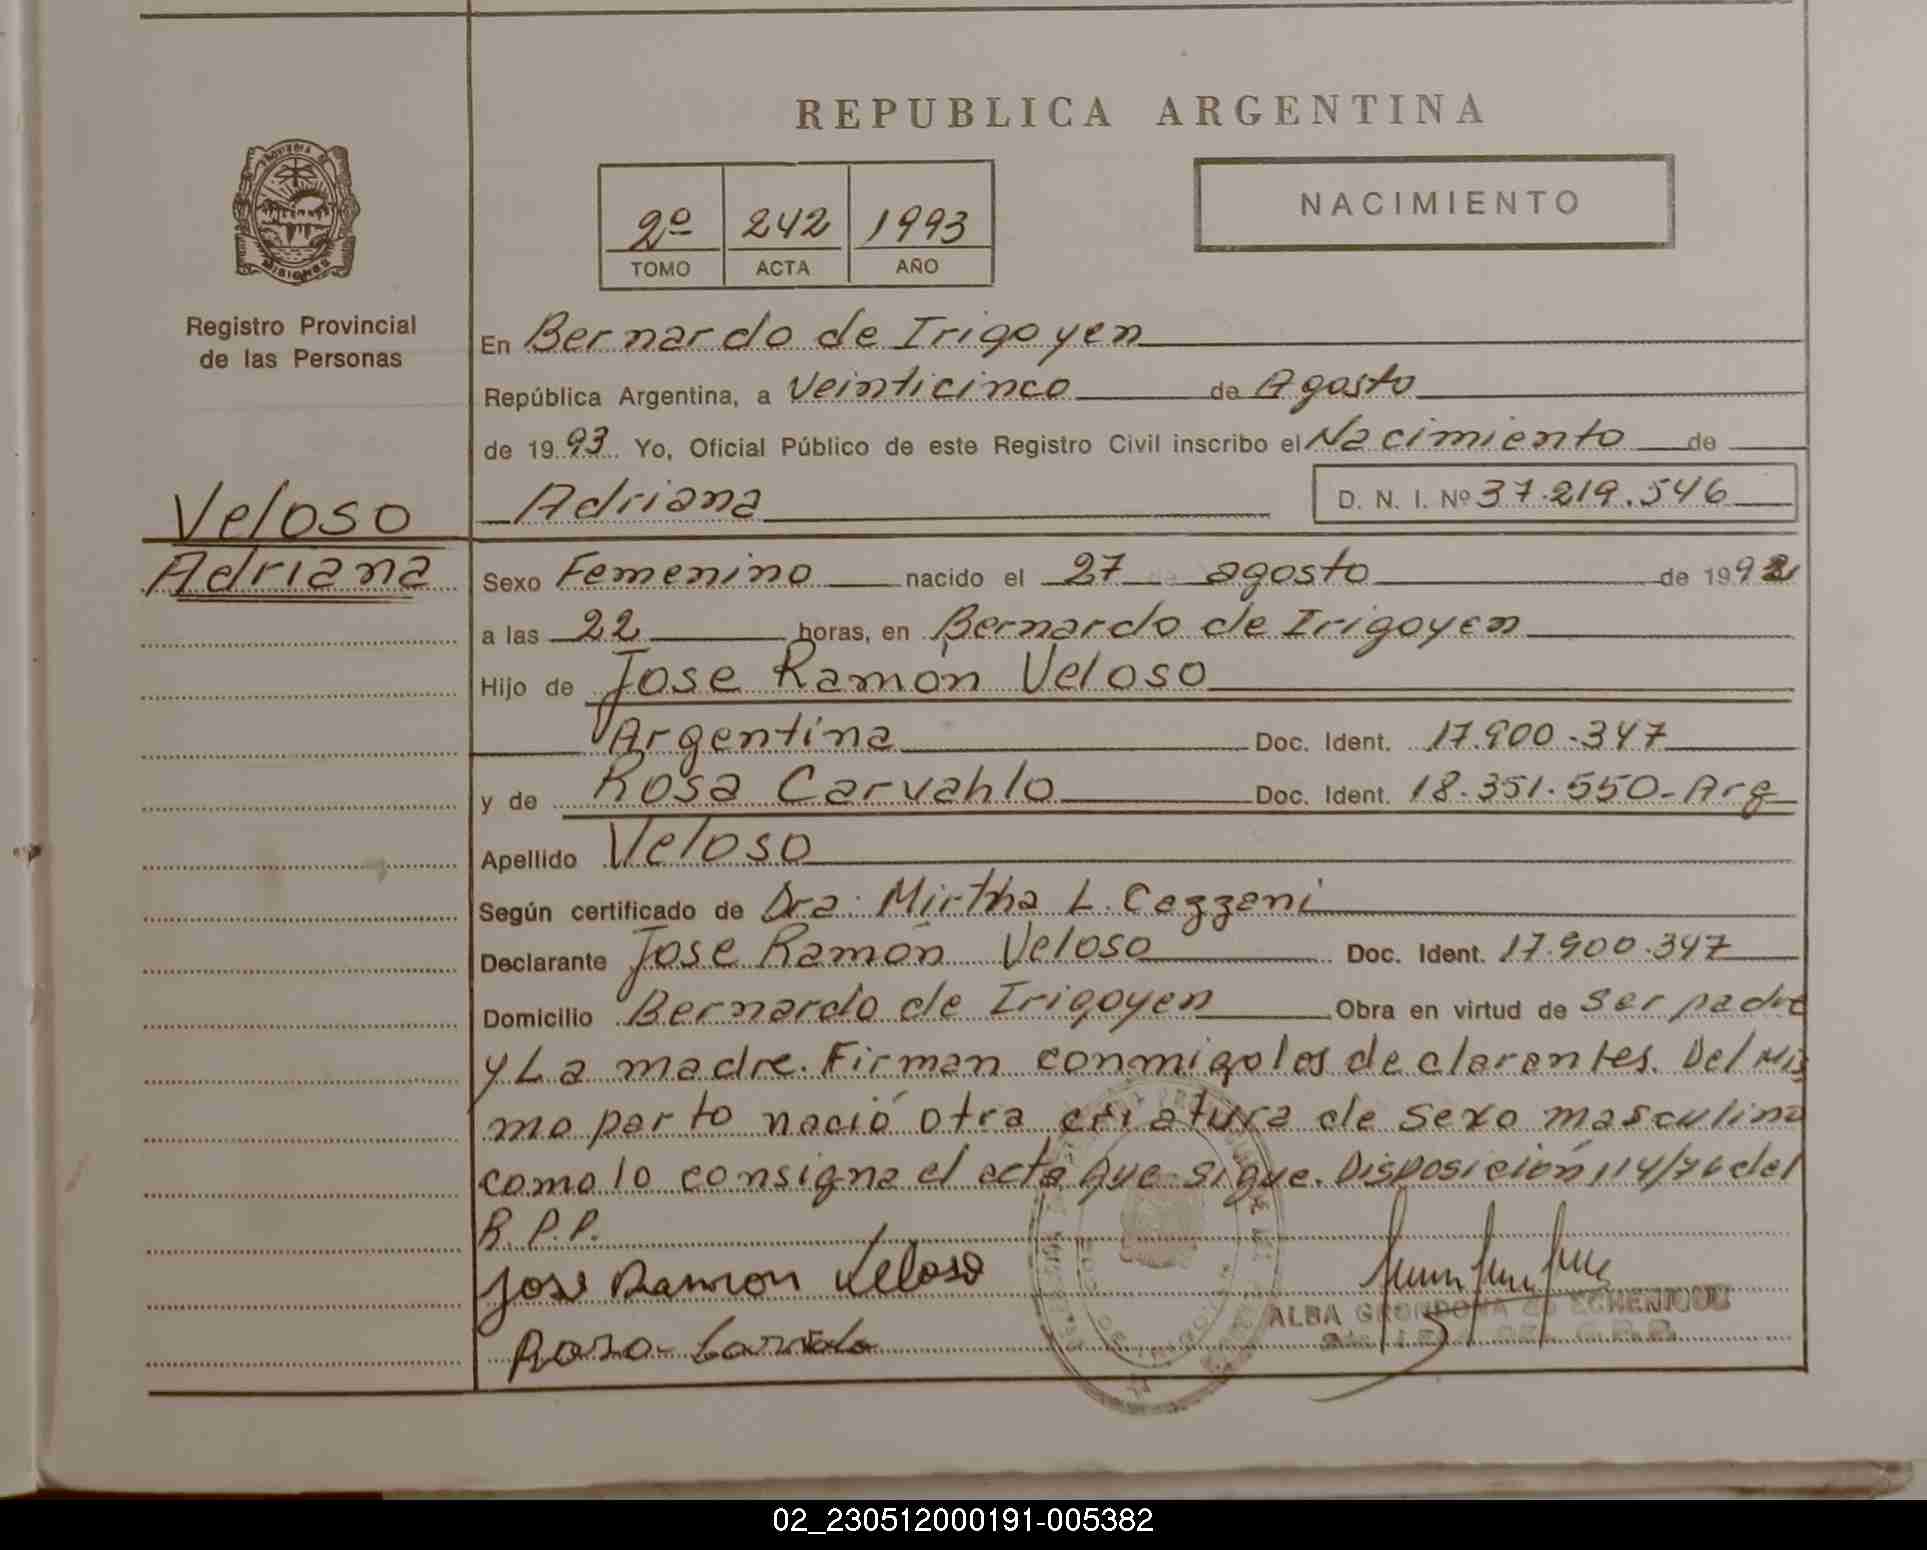 REPUBLICA ARGENTINA
NACIMIENTO
2º 242 1993
TOMO ACTA AÑO
PROVINCIA DE
MISIONES
Registro Provincial
de las Personas
En Bernardo de Irigoyen
República Argentina, a Veinticinco de Agosto
de 1993 Yo, Oficial Público de este Registro Civil inscribo el Nacimiento de
Adriana D. N. I. Nº 37.219.546
Veloso
Adriana
Sexo Femenino nacido el 27 de agosto de 1992
a las 22 horas, en Bernardo de Irigoyen
Hijo de Jose Ramón Veloso
Argentina Doc. Ident. 17.900.347
y de Rosa Carvahlo Doc. Ident. 18.351.550-Arg
Apellido Veloso
Según certificado de Dra. Mirtha L. Cazzeni
Declarante Jose Ramón Veloso Doc. Ident. 17.900.347
Domicilio Bernardo de Irigoyen Obra en virtud de ser padre
y La madre. Firman conmigo los declarantes. Del mis
mo parto nació otra criatura de sexo masculino
como lo consigna el acta que sigue. Disposición 114/76 del
R.P.P.
Jose Ramon Veloso
ALBA DE ECHENIQUE
Rosa
02_230512000191-005382